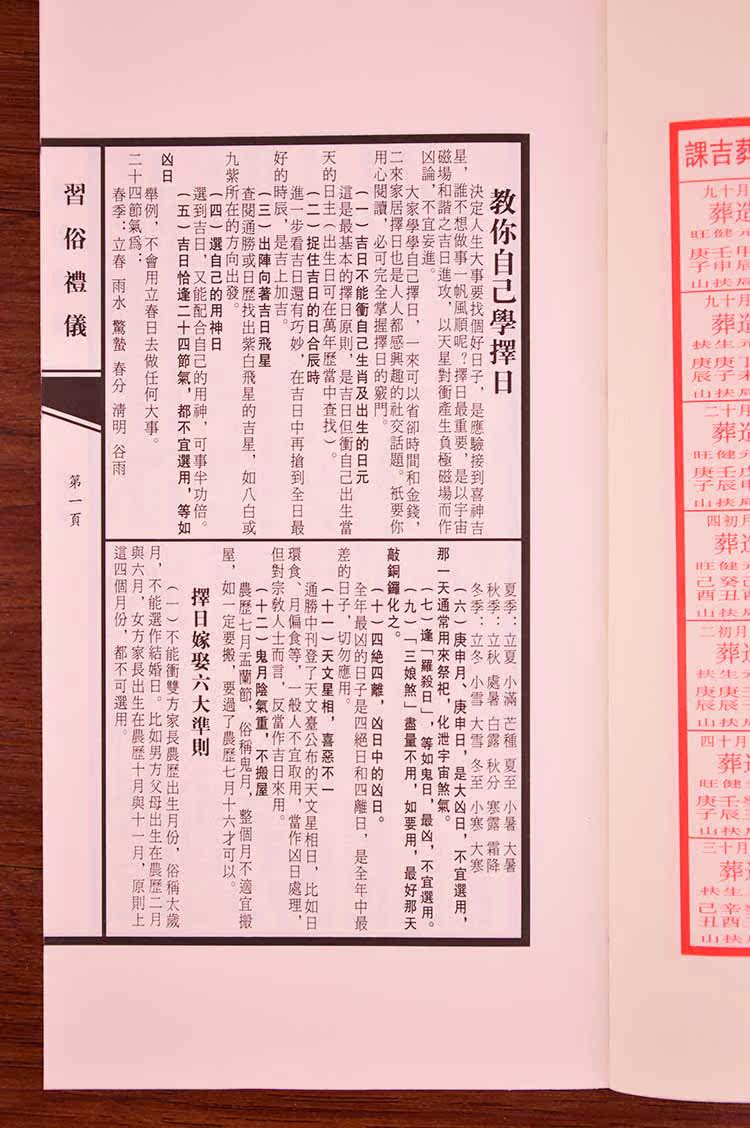 教你自己學擇日
決定人生大事要找個好日子，是應驗接到喜神吉
星，誰不想做事一帆風順呢？擇日最重要，是以宇宙
磁場和諧之吉日進攻，以天星對衝產生負極磁場而作
凶論，不宜妄進。
大家學學自己擇日，一來可以省卻時間和金錢，
二來家居擇日也是人人都感興趣的社交話題。衹要你
用心閱讀，必可完全掌握擇日的竅門。
（一）吉日不能衝自己生肖及出生的日元
這是最基本的擇日原則，是吉日但衝自己出生當
天的日主（出生日可在萬年歷當中查找）。
（二）捉住吉日的日合辰時
進一步看吉日還有巧妙，在吉日中再搶到全日最
好的時辰，是吉上加吉。
（三）出陣向著吉日飛星
查閱通勝或日歷找出紫白飛星的吉星，如八白或
九紫所在的方向出發。
（四）選自己的用神日
選到吉日，又能配合自己的用神，可事半功倍。
（五）吉日恰逢二十四節氣，都不宜選用，等如
凶日
舉例，不會用立春日去做任何大事。
二十四節氣爲：
春季：立春 雨水 驚蟄 春分 清明 谷雨
夏季：立夏 小滿 芒種 夏至 小暑 大暑
秋季：立秋 處暑 白露 秋分 寒露 霜降
冬季：立冬 小雪 大雪 冬至 小寒 大寒
（六）庚申月、庚申日，是大凶日，不宜選用，
那一天通常用來祭祀，化泄宇宙煞氣。
（七）逢「羅殺日」，等如鬼日，最凶，不宜選用。
（九）「三娘煞」盡量不用，如要用，最好那天
敲銅鑼化之。
（十）四絕四離，凶日中的凶日。
全年最凶的日子是四絕日和四離日，是全年中最
差的日子，切勿應用。
（十一）天文星相，喜惡不一
通勝中刊登了天文臺公布的天文星相日，比如日
環食、月偏食等，一般人不宜取用，當作凶日處理，
但對宗教人士而言，反當作吉日來用。
（十二）鬼月陰氣重，不搬屋
農歷七月盂蘭節，俗稱鬼月，整個月不適宜搬
屋，如一定要搬，要過了農歷七月十六才可以。
擇日嫁娶六大準則
（一）不能衝雙方家長農歷出生月份，俗稱太歲
月，不能選作結婚日。比如男方父母出生在農歷二月
與六月，女方家長出生在農歷十月與十一月，原則上
這四個月份，都不可選用。
習俗禮儀
第一頁
葬吉課